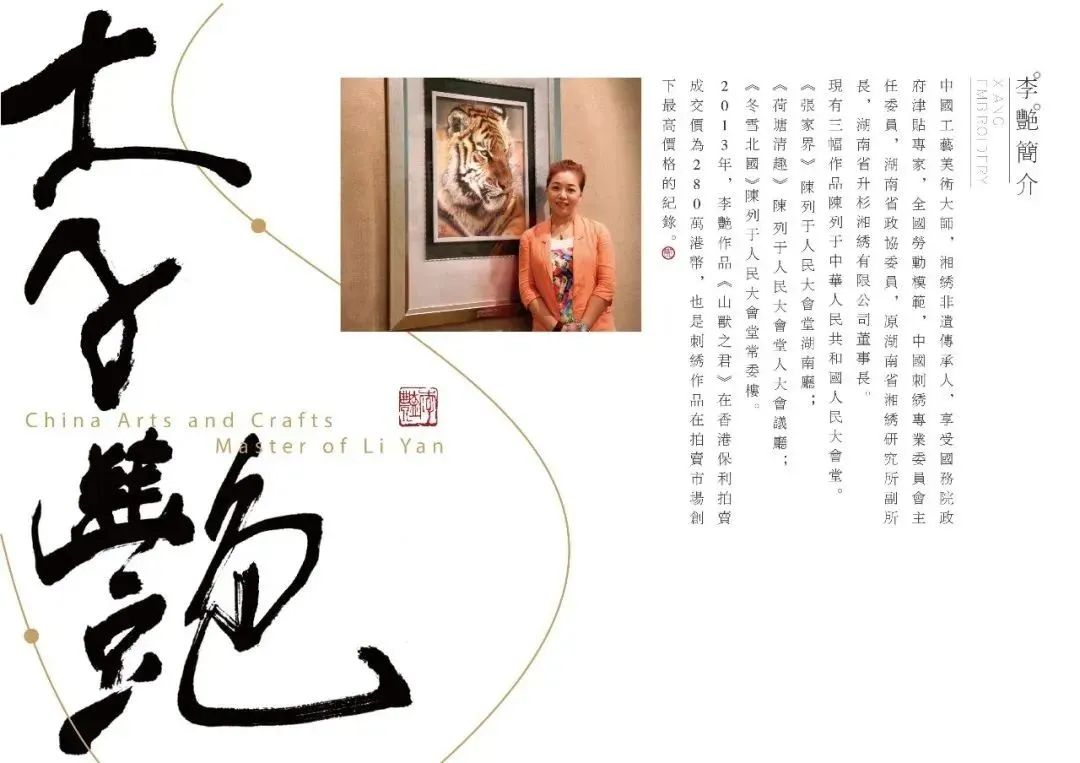 李艷
China Arts and Crafts
Master of Li Yan
李艷
李艷簡介
XIANG
EMBROIDERY
中國工藝美術大師，湘綉非遺傳承人，享受國務院政
府津貼專家，全國勞動模範，中國刺綉專業委員會主
任委員，湖南省政協委員，原湖南省湘綉研究所副所
長，湖南省升杉湘綉有限公司董事長。
現有三幅作品陳列于中華人民共和國人民大會堂。
《張家界》陳列于人民大會堂湖南廳；
《荷塘清趣》陳列于人民大會堂人大會議廳；
《冬雪北國》陳列于人民大會堂常委樓。
2013年，李艷作品《山獸之君》在香港保利拍賣
成交價為280萬港幣，也是刺綉作品在拍賣市場創
下最高價格的紀錄。